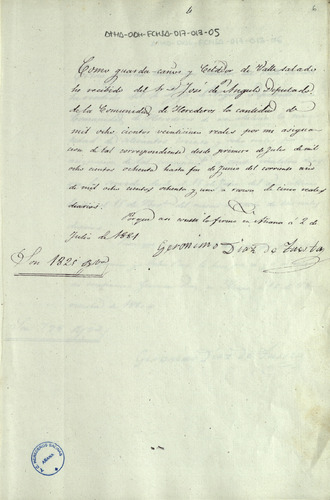 6
DMHA-ODH-FCHSA-017-018-05
Como guarda-caños y Celador de Valle salado
he recibido del Sr. Dn. José de Angulo Diputado
de la Comunidad de Herederos la cantidad de
mil ocho cientos veinticinco reales por mi asigna-
cion de tal correspondiente desde primero de Julio de mil
ocho cientos ochenta hasta fin de Junio del corriente año
de mil ocho cientos ochenta y uno a razon de cinco reales
diarios.
Y para que conste lo firmo en Añana á 2 de
Julio de 1881
Geronimo Diaz de
Son 1825
AÑANA